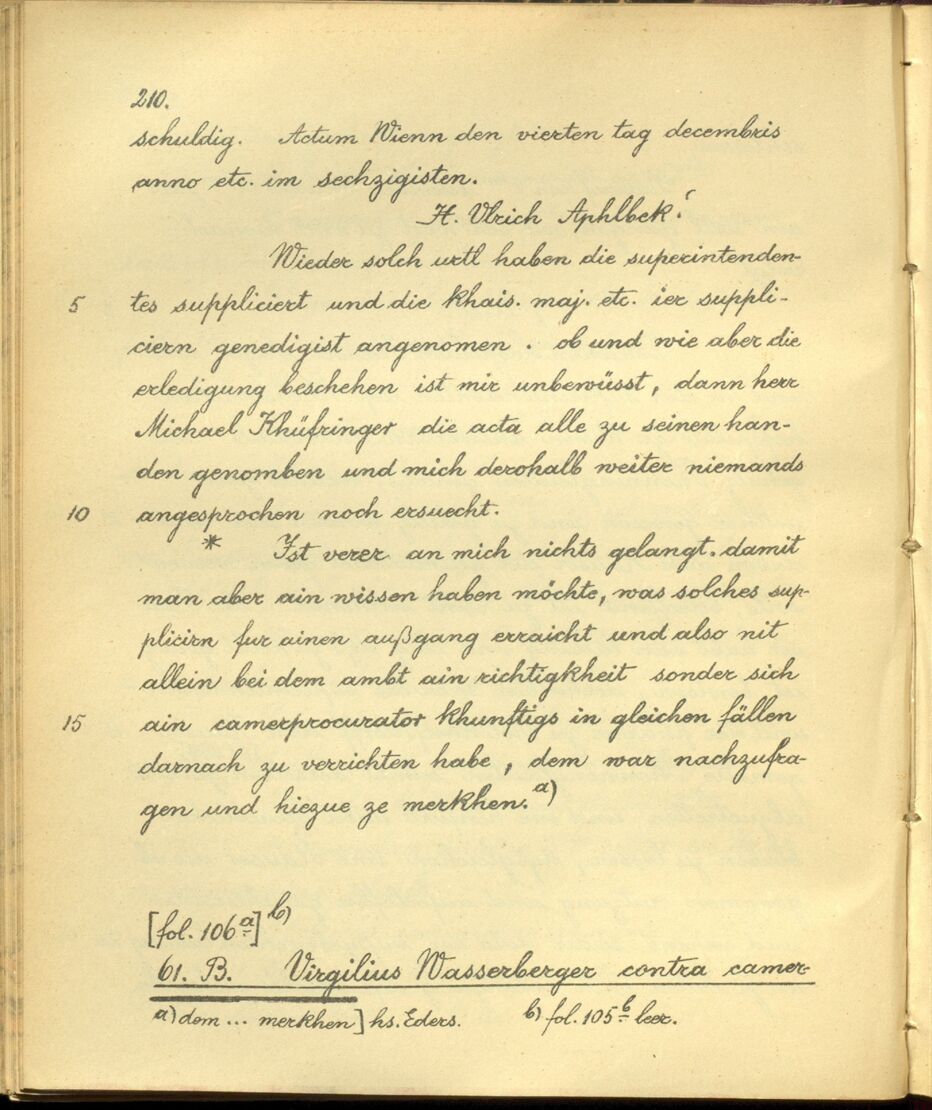 210.
schuldig. Actum Wienn den vierten tag decembris
anno etc. im sechzigisten.
H. Ulrich Aphlbek.
Wieder solch urtl haben die superintenden-
5 tes suppliciert und die khais. maj. etc. ier suppli-
ciern genedigist angenomen. ob und wie aber die
erledigung beschehen ist mir unbewüsst, dann herr
Michael Khüfringer die acta alle zu seinen han-
den genomben und mich derohalb weiter niemands
10 angesprochen noch ersuecht.
* Ist verer an mich nichts gelangt. damit
man aber ain wissen haben möchte, was solches sup-
plicirn fur ainen außgang erraicht und also nit
allein bei dem ambt ain richtigkheit sonder sich
15 ain camerprocurator khunftigs in gleichen fällen
darnach zu verrichten habe, dem war nachzufra-
gen und hiezue ze merkhen. a)
[fol. 106a] b)
61. B. Virgilius Wasserberger contra camer-
a) dem ... merkhen] hs. Eders. b) fol. 105b leer.